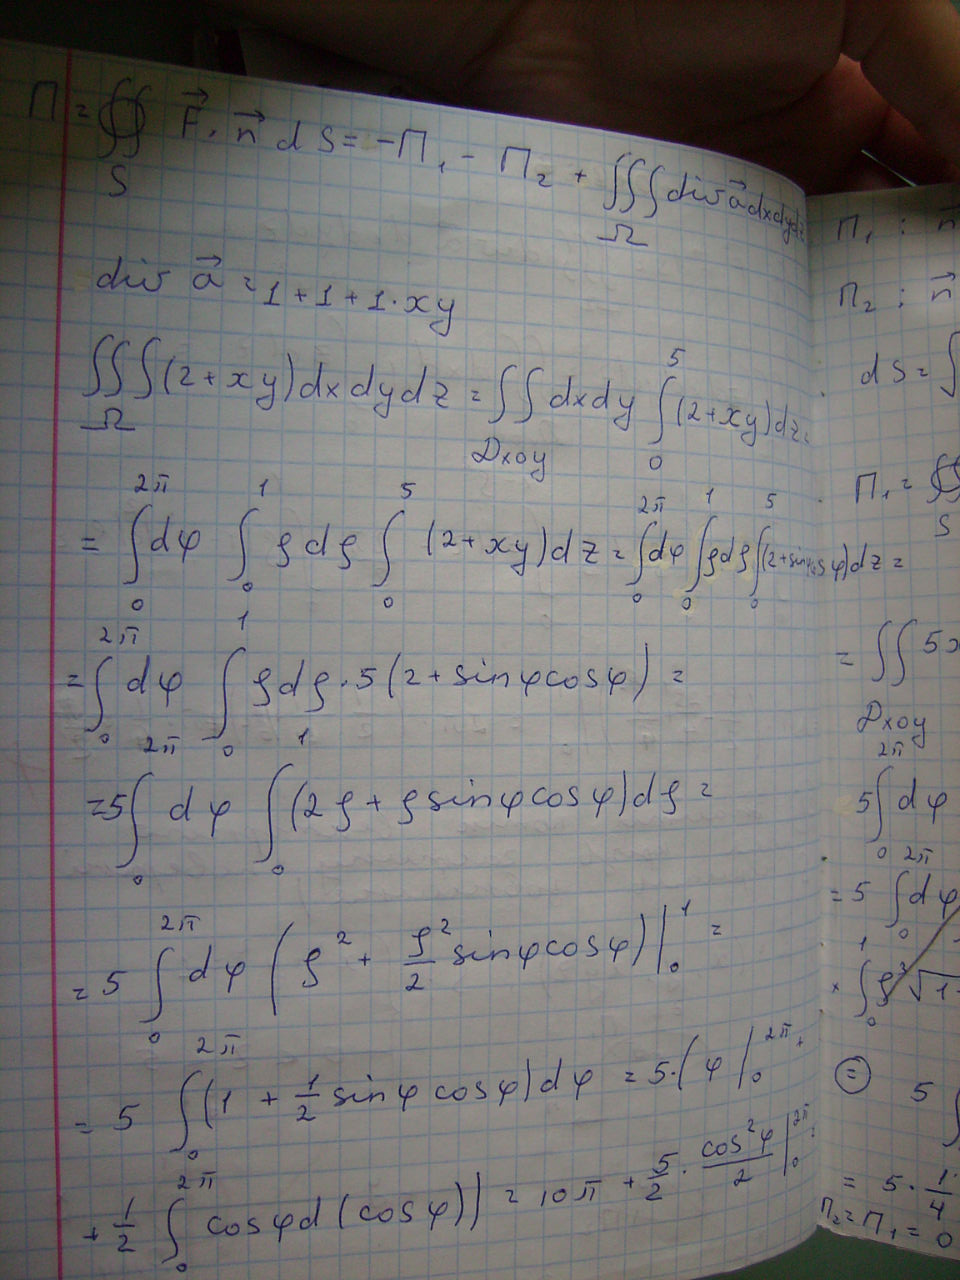 П = ∯ F⃗ · n⃗ dS = −П₁ − П₂ + ∭ div a⃗ dxdydz
S Ω
div a⃗ = 1 + 1 + 1 · xy
∭ (2 + xy) dx dy dz = ∬ dx dy ∫₀⁵ (2 + xy) dz =
Ω Dxoy
= ∫₀^2π dφ ∫₀¹ ρ dρ ∫₀⁵ (2 + xy) dz = ∫₀^2π dφ ∫₀¹ ρ dρ ∫₀⁵ (2 + sinφcosφ) dz =
= ∫₀^2π dφ ∫₀¹ ρ dρ · 5 (2 + sinφcosφ) =
= 5 ∫₀^2π dφ ∫₀¹ (2ρ + ρ sinφcosφ) dρ =
= 5 ∫₀^2π dφ (ρ² + ρ²/2 sinφcosφ) |₀¹ =
= 5 ∫₀^2π (1 + 1/2 sinφ cosφ) dφ = 5 · (φ |₀^2π +
+ 1/2 ∫₀^2π cosφ d(cosφ)) = 10π + 5/2 · cos²φ/2 |₀^2π =
П₁ : n⃗
П₂ : n⃗
dS = ∫
П₁ = ∯
S
= ∬ 5x
Dxoy
5 ∫₀^2π dφ
= 5 ∫₀^2π dφ
× ∫₀¹ ρ³ √1
⊜ 5 ∫
= 5 · 1/4
П₂ = П₁ = 0